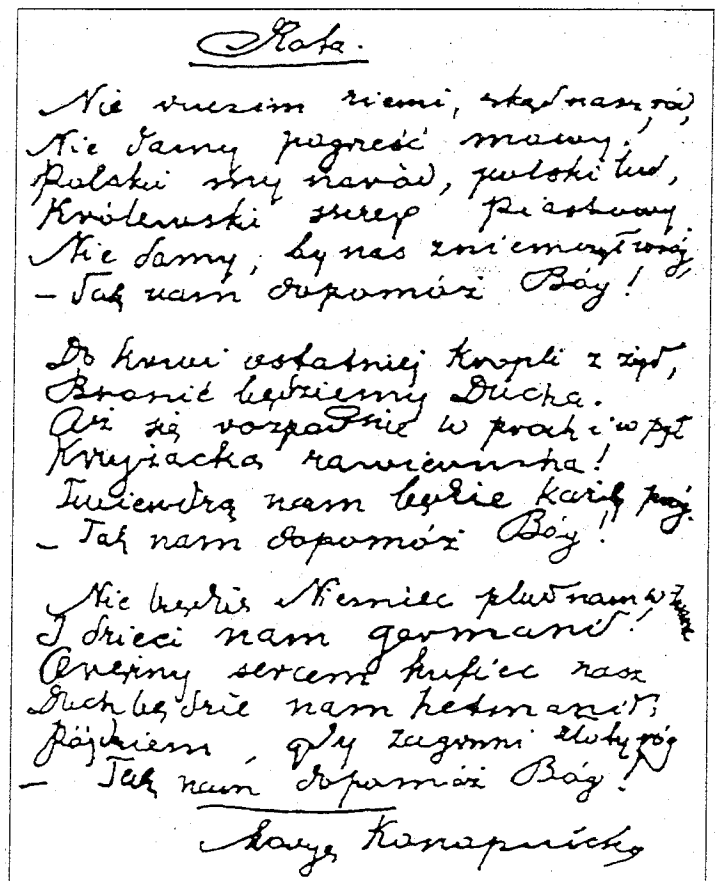 Rota.
Nie rzucim ziemi, skąd nasz ród,
Nie damy pogrześć mowy!
Polski my naród, polski lud,
Królewski szczep Piastowy.
Nie damy, by nas zniemczył wróg,
– Tak nam dopomóż Bóg!
Do krwi ostatniej kropli z żył,
Bronić będziemy Ducha.
Aż się rozpadnie w proch i w pył
Krzyżacka zawierucha!
Twierdzą nam będzie każdy próg.
– Tak nam dopomóż Bóg!
Nie będzie Niemiec pluł nam w twarz
I dzieci nam germanił!
Orężny sercem hufiec nasz
Duch będzie nam hetmanił;
Pójdziem, gdy zagrzmi złoty róg
– Tak nam dopomóż Bóg!
Marya Konopnicka